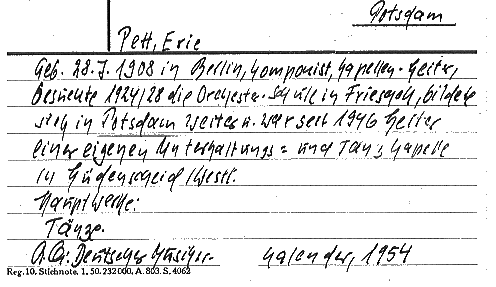 Potsdam
Pett, Eric
Geb. 28.7. 1908 in Berlin, Komponist, Kapellen-Leiter,
Besuchte 1924/28 die Orchester-Schule in Friesack, bildete
sich in Potsdam weiter u. war seit 1946 Leiter
einer eigenen Unterhaltungs= und Tanzkapelle
in Lüdenscheid/Westf.
Hauptwerke:
Tänze.
A.Q.: Deutscher Musiker-Kalender, 1954
Reg. 10. Stichnote. 1. 50. 232000. A. 803. S. 4062